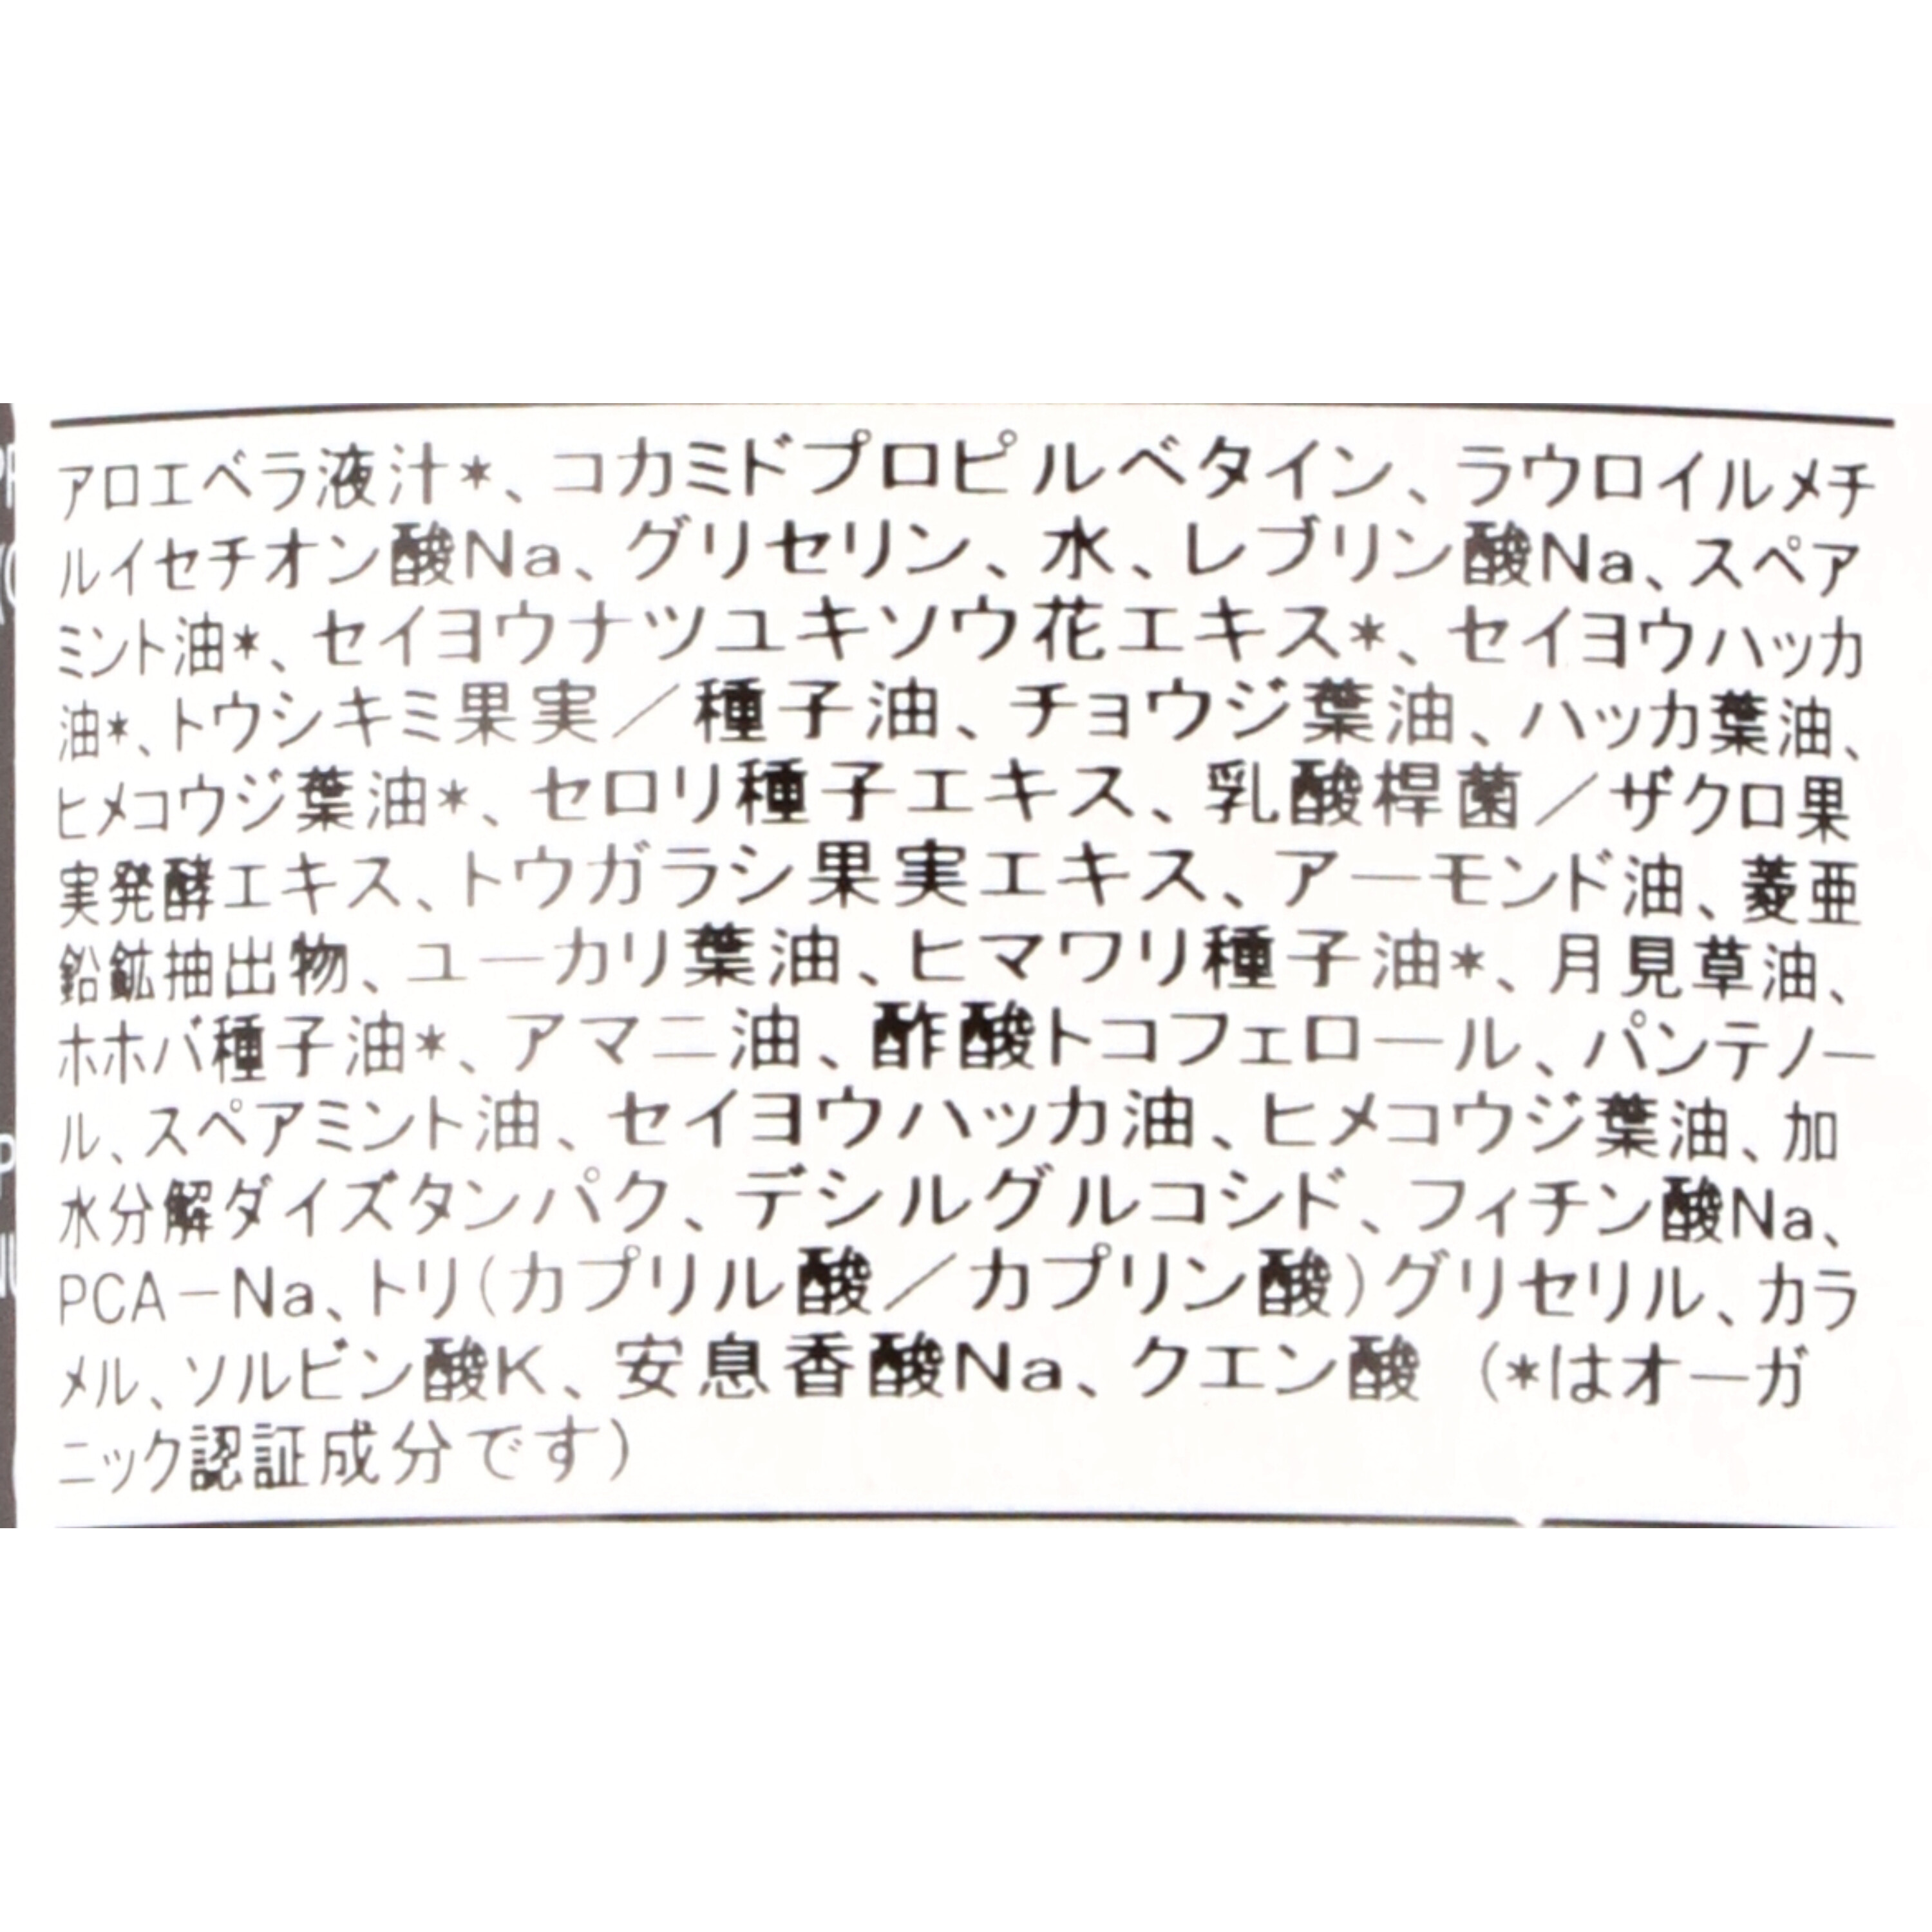 アロエベラ液汁*、コカミドプロピルベタイン、ラウロイルメチ
ルイセチオン酸Na、グリセリン、水、レブリン酸Na、スペア
ミント油*、セイヨウナツユキソウ花エキス*、セイヨウハッカ
油*、トウシキミ果実／種子油、チョウジ葉油、ハッカ葉油、
ヒメコウジ葉油*、セロリ種子エキス、乳酸桿菌／ザクロ果
実発酵エキス、トウガラシ果実エキス、アーモンド油、菱亜
鉛鉱抽出物、ユーカリ葉油、ヒマワリ種子油*、月見草油、
ホホバ種子油*、アマニ油、酢酸トコフェロール、パンテノー
ル、スペアミント油、セイヨウハッカ油、ヒメコウジ葉油、加
水分解ダイズタンパク、デシルグルコシド、フィチン酸Na、
PCA－Na、トリ(カプリル酸／カプリン酸)グリセリル、カラ
メル、ソルビン酸K、安息香酸Na、クエン酸 (*はオーガ
ニック認証成分です)